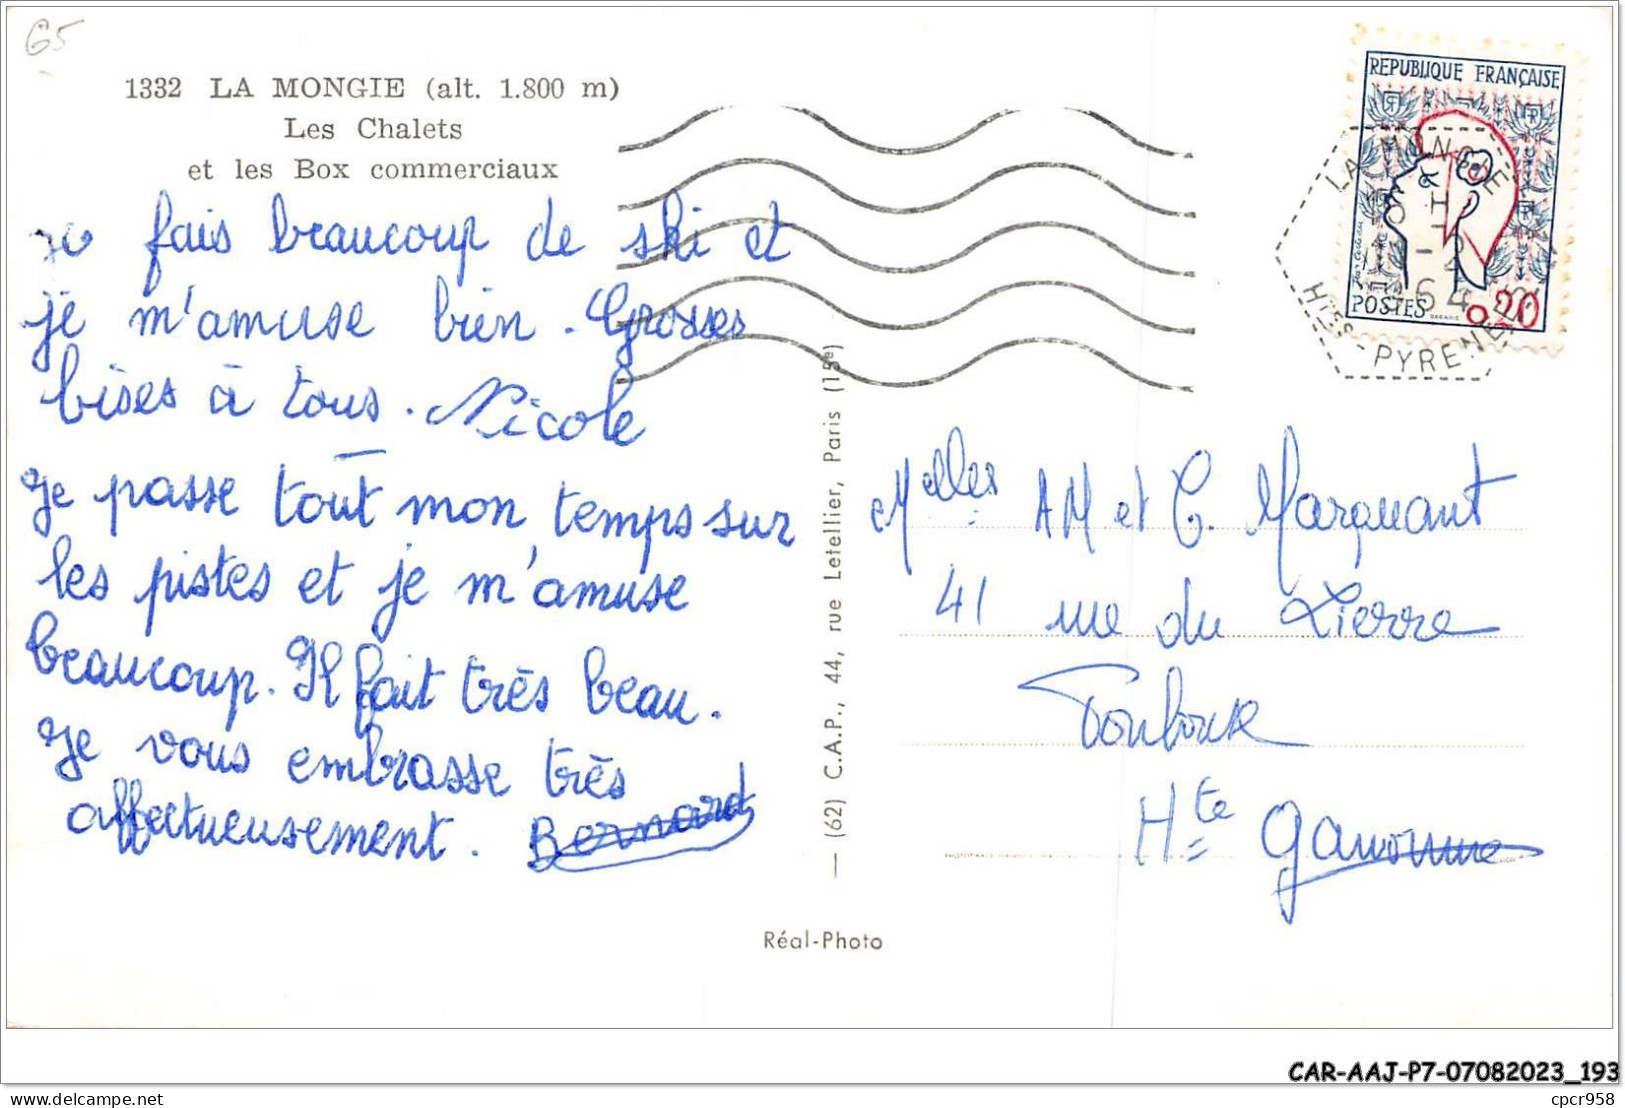 65
1332 LA MONGIE (alt. 1.800 m)
Les Chalets
et les Box commerciaux
je fais beaucoup de ski et
je m'amuse bien. Grosses
bises à tous. Nicole
Je passe tout mon temps sur
les pistes et je m'amuse
beaucoup. Il fait très beau.
Je vous embrasse très
affectueusement. Bernard
(62) C.A.P., 44, rue Letellier, Paris (15e)
Réal-Photo
REPUBLIQUE FRANÇAISE
POSTES 0,20
LA MONGIE
15 H
64
Htes PYRENEES
Melles AM et C. Marquant
41 rue du Lierre
Toulouse
Hte Garonne
CAR-AAJ-P7-07082023_193
www.delcampe.net
cpcr958